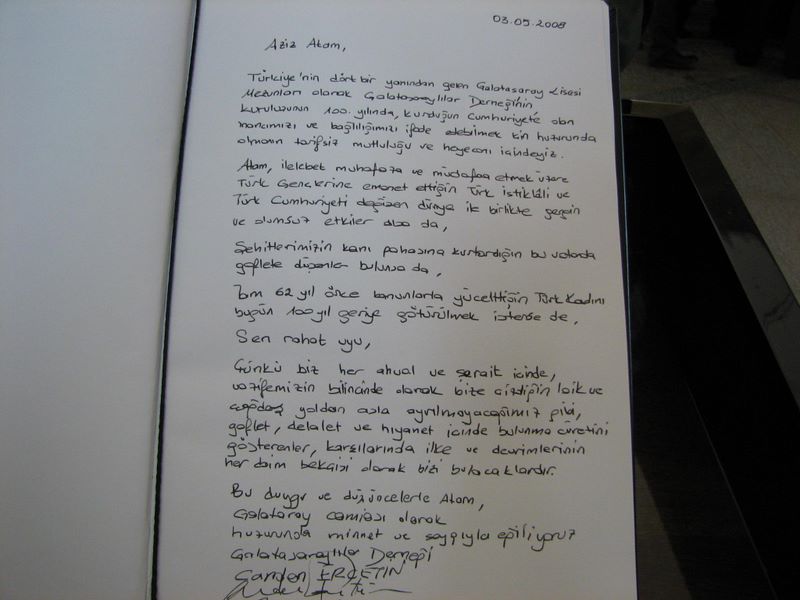 03.05.2008
Aziz Atam,
Türkiye'nin dört bir yanından gelen Galatasaray Lisesi
Mezunları olarak Galatasaraylılar Derneği'nin
kuruluşunun 100. yılında, kurduğun Cumhuriyet'e olan
inancımızı ve bağlılığımızı ifade edebilmek için huzurunda
olmanın tarifsiz mutluluğu ve heyecanı içindeyiz.
Atam, ilelebet muhafaza ve müdafaa etmek üzere
Türk Gençlerine emanet ettiğin Türk İstiklâli ve
Türk Cumhuriyeti değişen dünya ile birlikte gergin
ve olumsuz etkiler alsa da,
Şehitlerimizin kanı pahasına kurtardığın bu vatanda
gaflete düşenler bulunsa da,
Tam 62 yıl önce kanunlarla yücelttiğin Türk Kadını
bugün 100 yıl geriye götürülmek istense de,
Sen rahat uyu,
Çünkü biz her ahval ve şerait içinde,
vazifemizin bilincinde olarak bize çizdiğin laik ve
çağdaş yoldan asla ayrılmayacağımız gibi,
gaflet, delalet ve hıyanet içinde bulunma cüretini
gösterenler, karşılarında ilke ve devrimlerinin
her daim bekçisi olarak bizi bulacaklardır.
Bu duygu ve düşüncelerle Atam,
Galataray camiası olarak
huzurunda minnet ve saygıyla eğiliyoruz
Galatasaraylılar Derneği
Candan ERÇETİN